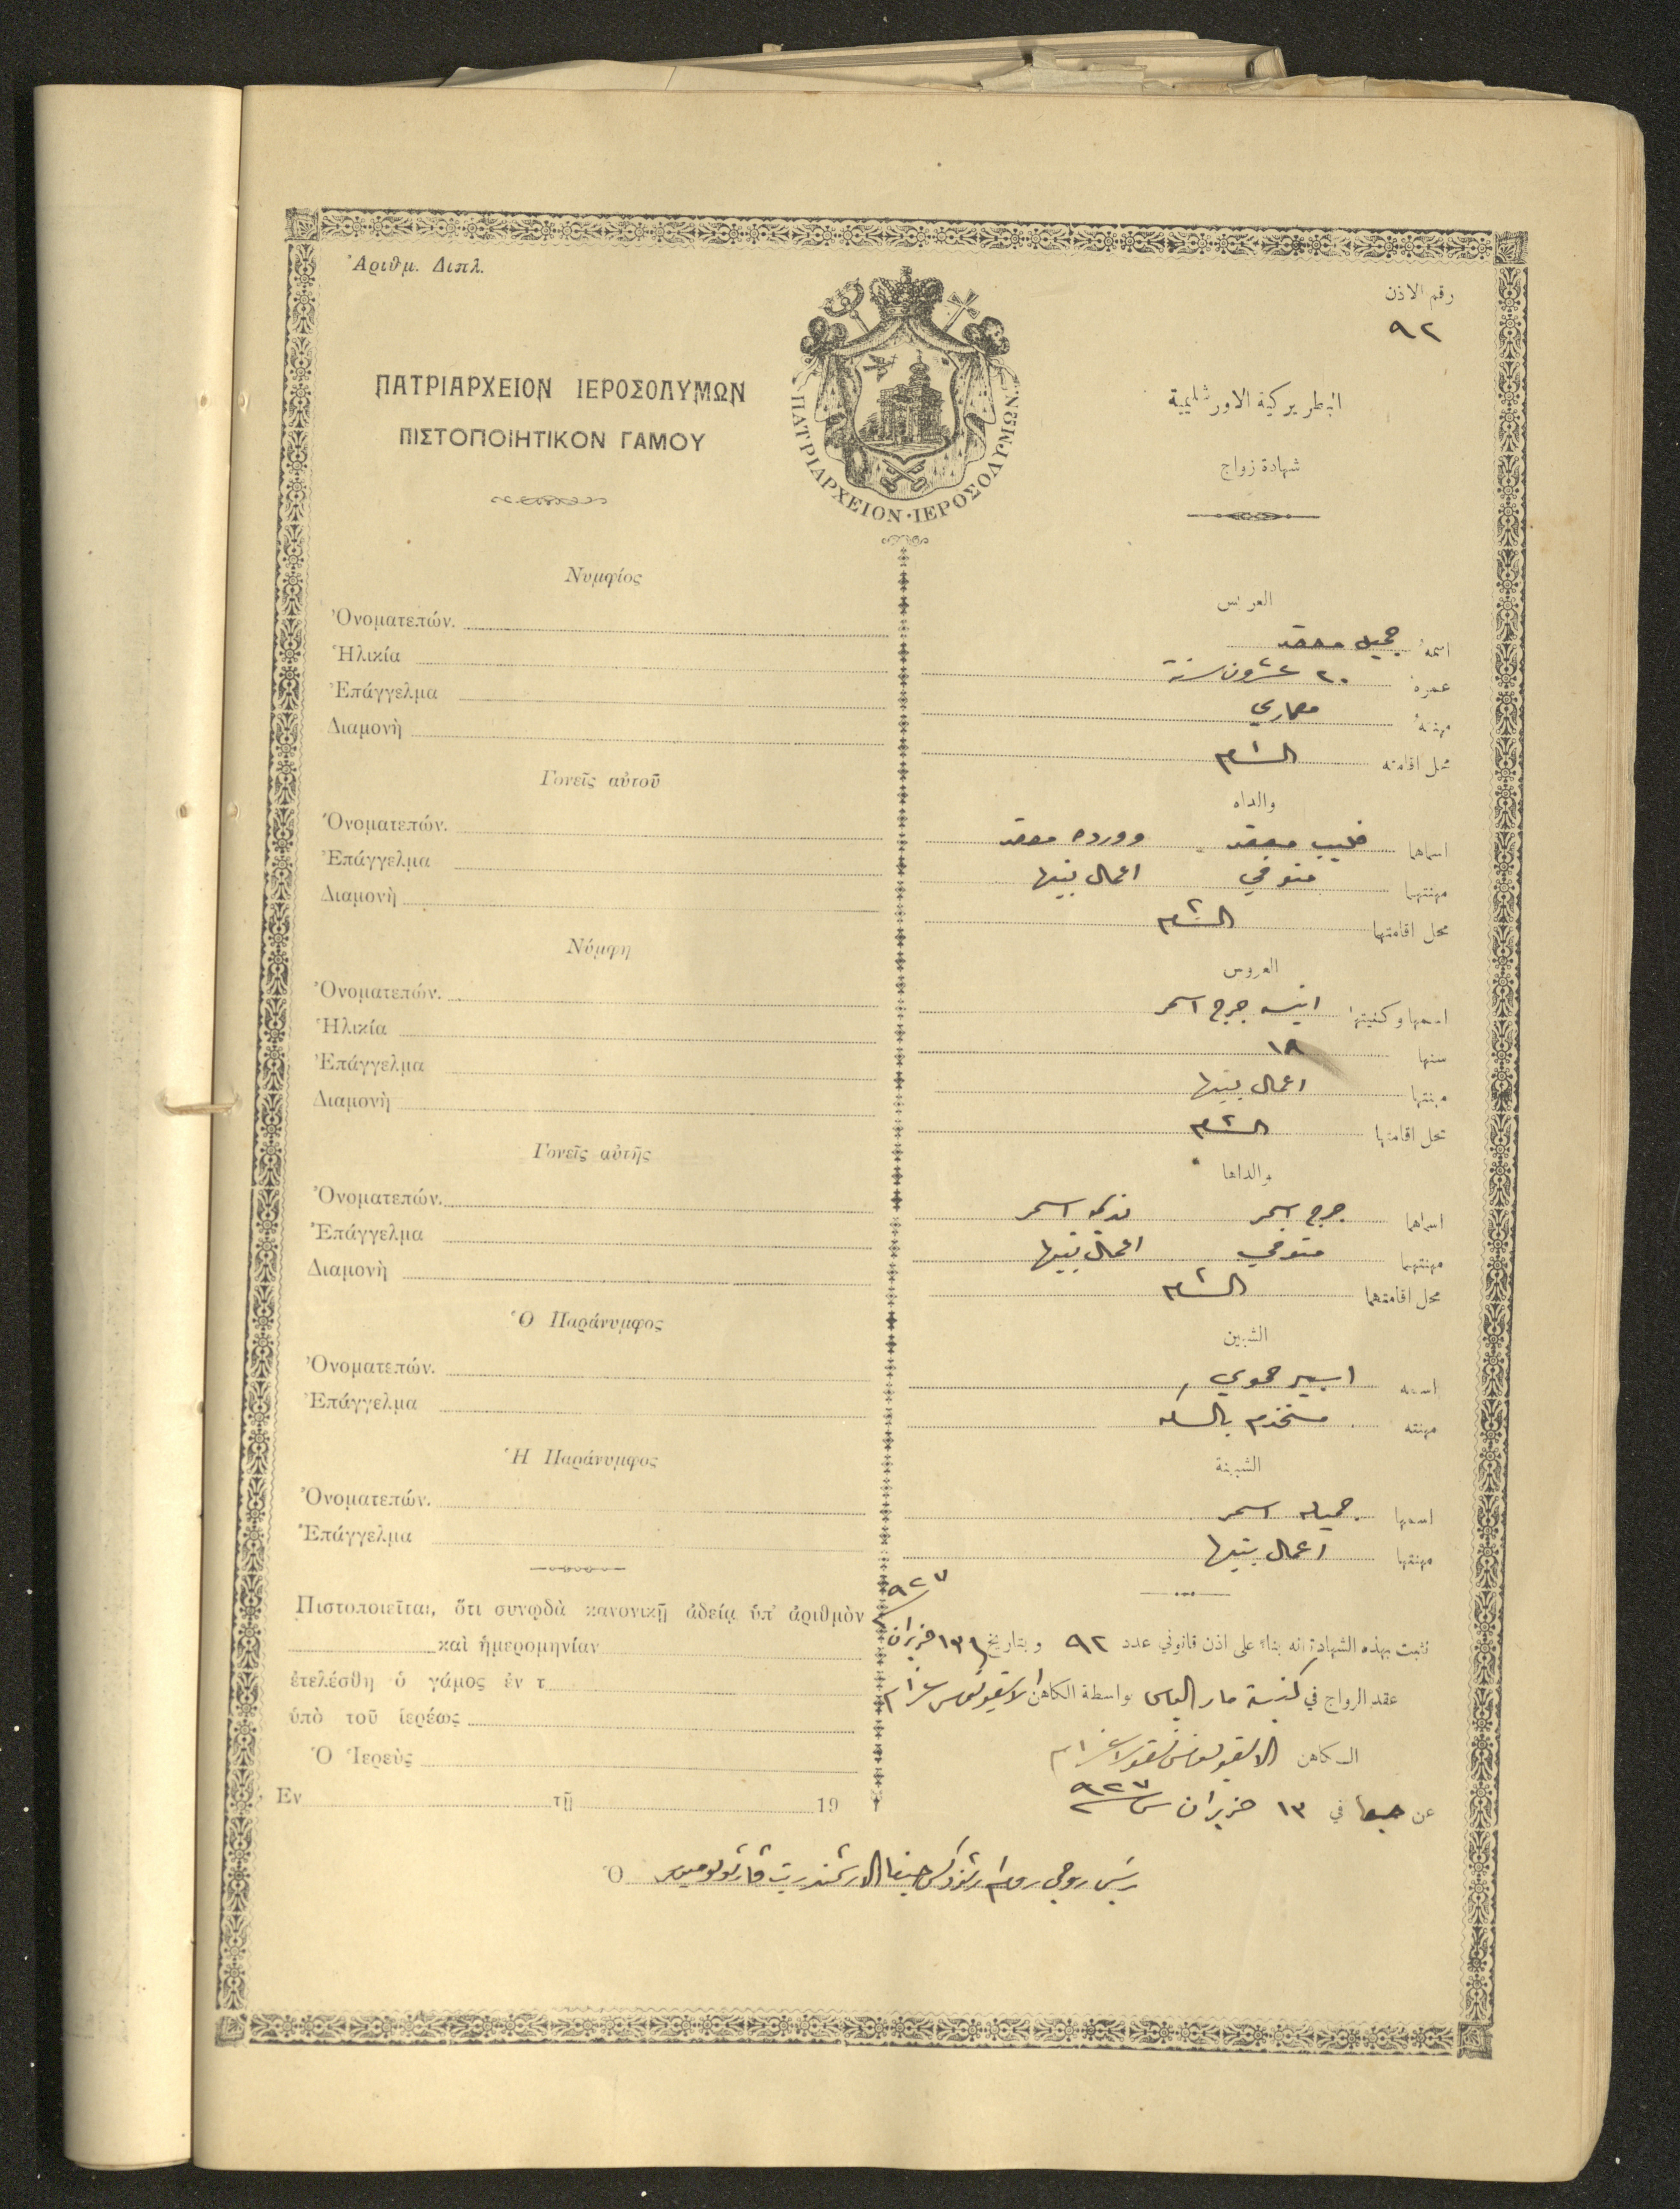 Ἀριθμ. Διπλ.
رقم الاذن
٩٢
ΠΑΤΡΙΑΡΧΕΙΟΝ ΙΕΡΟΣΟΛΥΜΩΝ
ΠΙΣΤΟΠΟΙΗΤΙΚΟΝ ΓΑΜΟΥ
ΠΑΤΡΙΑΡΧΕΙΟΝ·ΙΕΡΟΣΟΛΥΜΩΝ
البطريركية الاورشليمية
شهادة زواج
Νυμφίος
Ὀνοματεπών.
Ἡλικία
Ἐπάγγελμα
Διαμονὴ
Γονεῖς αὐτοῦ
Ὀνοματεπών.
Ἐπάγγελμα
Διαμονὴ
Νύμφη
Ὀνοματεπών.
Ἡλικία
Ἐπάγγελμα
Διαμονὴ
Γονεῖς αὐτῆς
Ὀνοματεπών.
Ἐπάγγελμα
Διαμονὴ
Ὁ Παράνυμφος
Ὀνοματεπών.
Ἐπάγγελμα
Ἡ Παράνυμφος
Ὀνοματεπών.
Ἐπάγγελμα
Πιστοποιεῖται, ὅτι συνῳδὰ κανονικῇ ἀδείᾳ ὑπ' ἀριθμὸν
καὶ ἡμερομηνίαν
ἐτελέσθη ὁ γάμος ἐν τ
ὑπὸ τοῦ ἱερέως
Ὁ Ἱερεὺς
Ἐν τῇ 19
العريس
اسمهُ جميل
عمرهُ ٢٠ عشرون سنة
مهنتهُ معماري
محل اقامته الشام
والداه
اسماهما ووردة
مهنتهما متوفي اعمال بيتها
محل اقامتهما الشام
العروس
اسمها وكنيتها انيسه جرجي اسمر
سنها ١٨
مهنتها اعمال بيتها
محل اقامتها الشام
والداها
اسماهما جرجي اسمر اسمر
مهنتهما متوفي اعمال بيتها
محل اقامتهما الشام
الشبين
اسمه حموي
مهنته مستخدم بالسكه
الشبينة
اسمها جميله اسمر
مهنتها اعمال بيتها
٩٢٧
نثبت بهذه الشهادة انه بناء على اذن قانوني عدد ٩٢ وبتاريخ ١٣ حزيران
عقد الزواج في كنيسة مار الياس بواسطة الكاهن
الكاهن
عن حيفا في ١٣ حزيران س ٩٢٧
Ὁ رئيس روحي روم ارثوذكس حيفا الارشمندريت